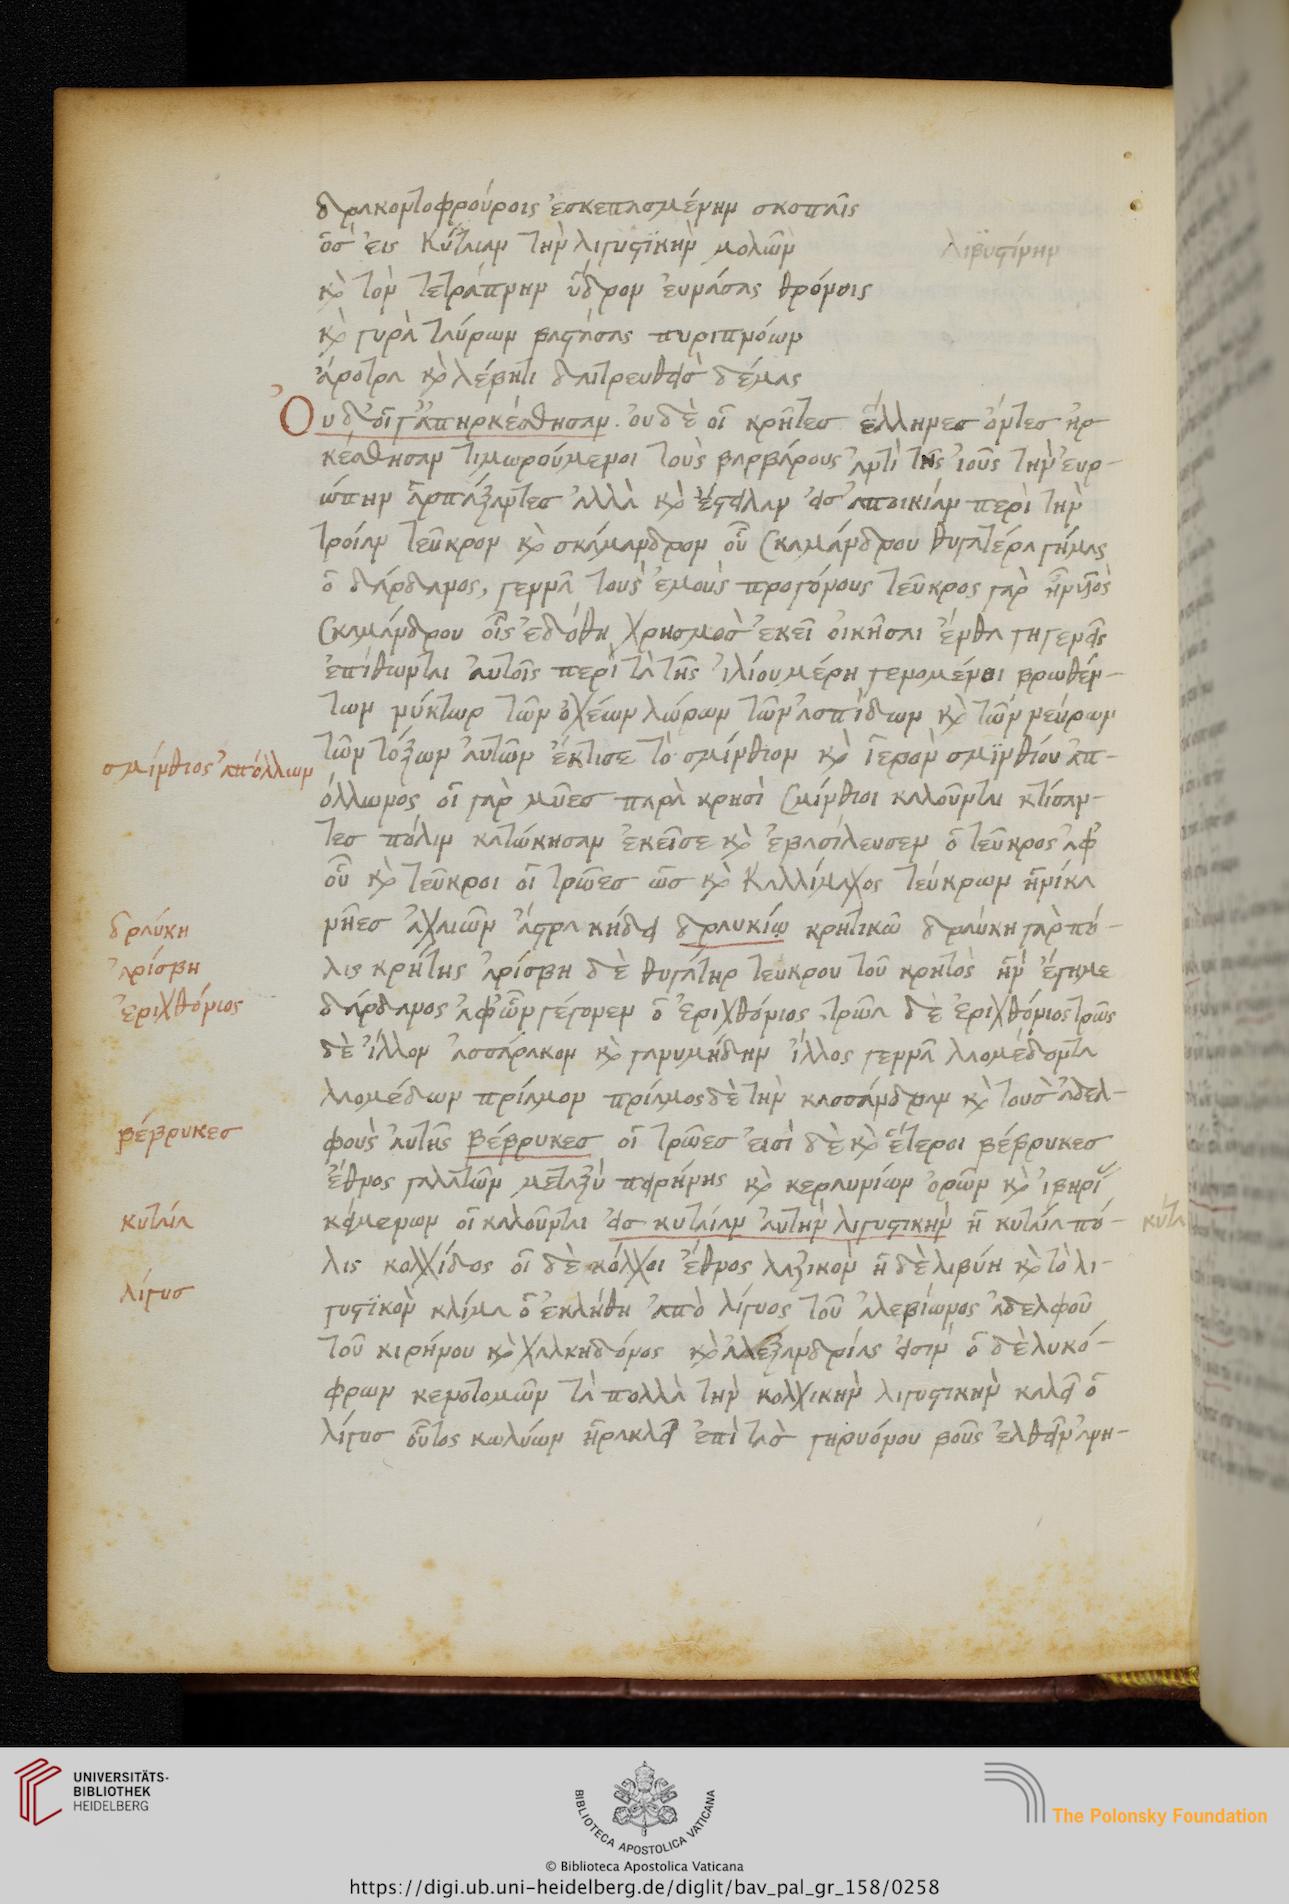 δρακοντοφρούροις ἐσκεπασμένην σκοπαῖς
ὃς εἰς Κύταιαν τὴν λιγυστικὴν μολὼν
λιβυστίνην
καὶ τὸν τετράπνην ὕδρον εὐνάσας θρόνοις
καὶ γυρὰ ταύρων βαστάσας πυριπνόων
ἄροτρα καὶ λέβητι δαιτρευθεὶς δέμας
Οὐδ' οἵ γ' ἀπηρκέσθησαν. οὐδὲ οἱ κρῆτες ἕλληνες ὄντες ἠρ-
κέσθησαν τιμωρούμενοι τοὺς βαρβάρους ἀντὶ τῆς ἰοῦς τὴν εὐρ-
ώπην ἁρπάξαντες ἀλλὰ καὶ ἔστειλαν εἰς ἀποικίαν περὶ τὴν
τροίαν τεῦκρον καὶ σκάμανδρον οὗ Σκαμάνδρου θυγατέρα γήμας
ὁ δάρδανος, γεννᾶ τοὺς ἐμοὺς προγόνους τεῦκρος γὰρ ἦν υἱὸς
Σκαμάνδρου οἷς ἐδόθη χρησμὸς ἐκεῖ οἰκῆσαι ἔνθα γηγενεῖς
ἐπίθωνται αὐτοῖς περὶ τὰ τῆς ἰλίου μέρη γενομένοι βρωθέν-
των νύκτωρ τῶν ὀχέων λώρων τῶν ἀσπίδων καὶ τῶν νεύρων
τῶν τόξων αὐτῶν ἔκτισε τὸ σμίνθιον καὶ ἱερὸν σμινθίου ἀπ-
σμίνθιος ἀπόλλων
όλλωνος οἱ γὰρ μύες παρὰ κρησὶ Σμίνθιοι καλοῦνται κτίσαν-
τες πόλιν κατώκησαν ἐκεῖσε καὶ ἐβασίλευσεν ὁ τεῦκρος ἀφ'
οὗ καὶ τεῦκροι οἱ τρῶες ὡς καὶ Καλλίμαχος τεύκρων ἡνίκα
νῆες ἀχαιῶν ἄστρα κήδει δραυκίῳ κρητικῷ δραύκη γὰρ πό-
δραύκη
λις κρήτης ἀρίσβη δὲ θυγάτηρ τεύκρου τοῦ κρητὸς ἣν ἔγημε
ἀρίσβη
δάρδανος ἀφ' ὧν γέγονεν ὁ ἐριχθόνιος. τρῶα δὲ ἐριχθόνιος τρῶς
ἐριχθόνιος
δὲ ἴλλον ἀσσάρακον καὶ γανυμήδην ἴλλος γεννᾶ λαομέδοντα
λαομέδων πρίαμον πρίαμος δὲ τὴν κασσάνδραν καὶ τοὺς ἀδελ-
φοὺς αὐτῆς Βέβρυκες οἱ τρῶες εἰσὶ δὲ καὶ ἕτεροι βέβρυκες
βέβρυκες
ἔθνος γαλατῶν μεταξὺ πυρήνης καὶ κεραυνίων ὀρῶν καὶ ἰβηρί
κείμενων οἳ καλοῦνται εἰς κυταίαν αὐτὴν λιγυστικὴν ἡ κυταία πό-
κυταία
κύτα
λις κολχίδος οἱ δὲ κόλχοι ἔθνος λαζικὸν ἡ δὲ λιβύη καὶ τὸ λι-
γυστικὸν κλίμα ὃ ἐκλήθη ἀπὸ λίγυος τοῦ ἀλεβίωνος ἀδελφοῦ
λίγυς
τοῦ κιρήνου καὶ χαλκηδόνος καὶ ἀλεξανδρίας εἰσιν ὁ δὲ λυκό-
φρων κενοτομῶν τὰ πολλὰ τὴν κολχικὴν λιγυστικὴν καλεῖ ὁ
λίγυς οὗτος κωλύων ἡρακλεῖ ἐπὶ τὰς γηρυόνου βοῦς ἐλθεῖν ἀνη-
UNIVERSITÄTS-
BIBLIOTHEK
HEIDELBERG
BIBLIOTECA APOSTOLICA VATICANA
The Polonsky Foundation
© Biblioteca Apostolica Vaticana
https://digi.ub.uni-heidelberg.de/diglit/bav_pal_gr_158/0258